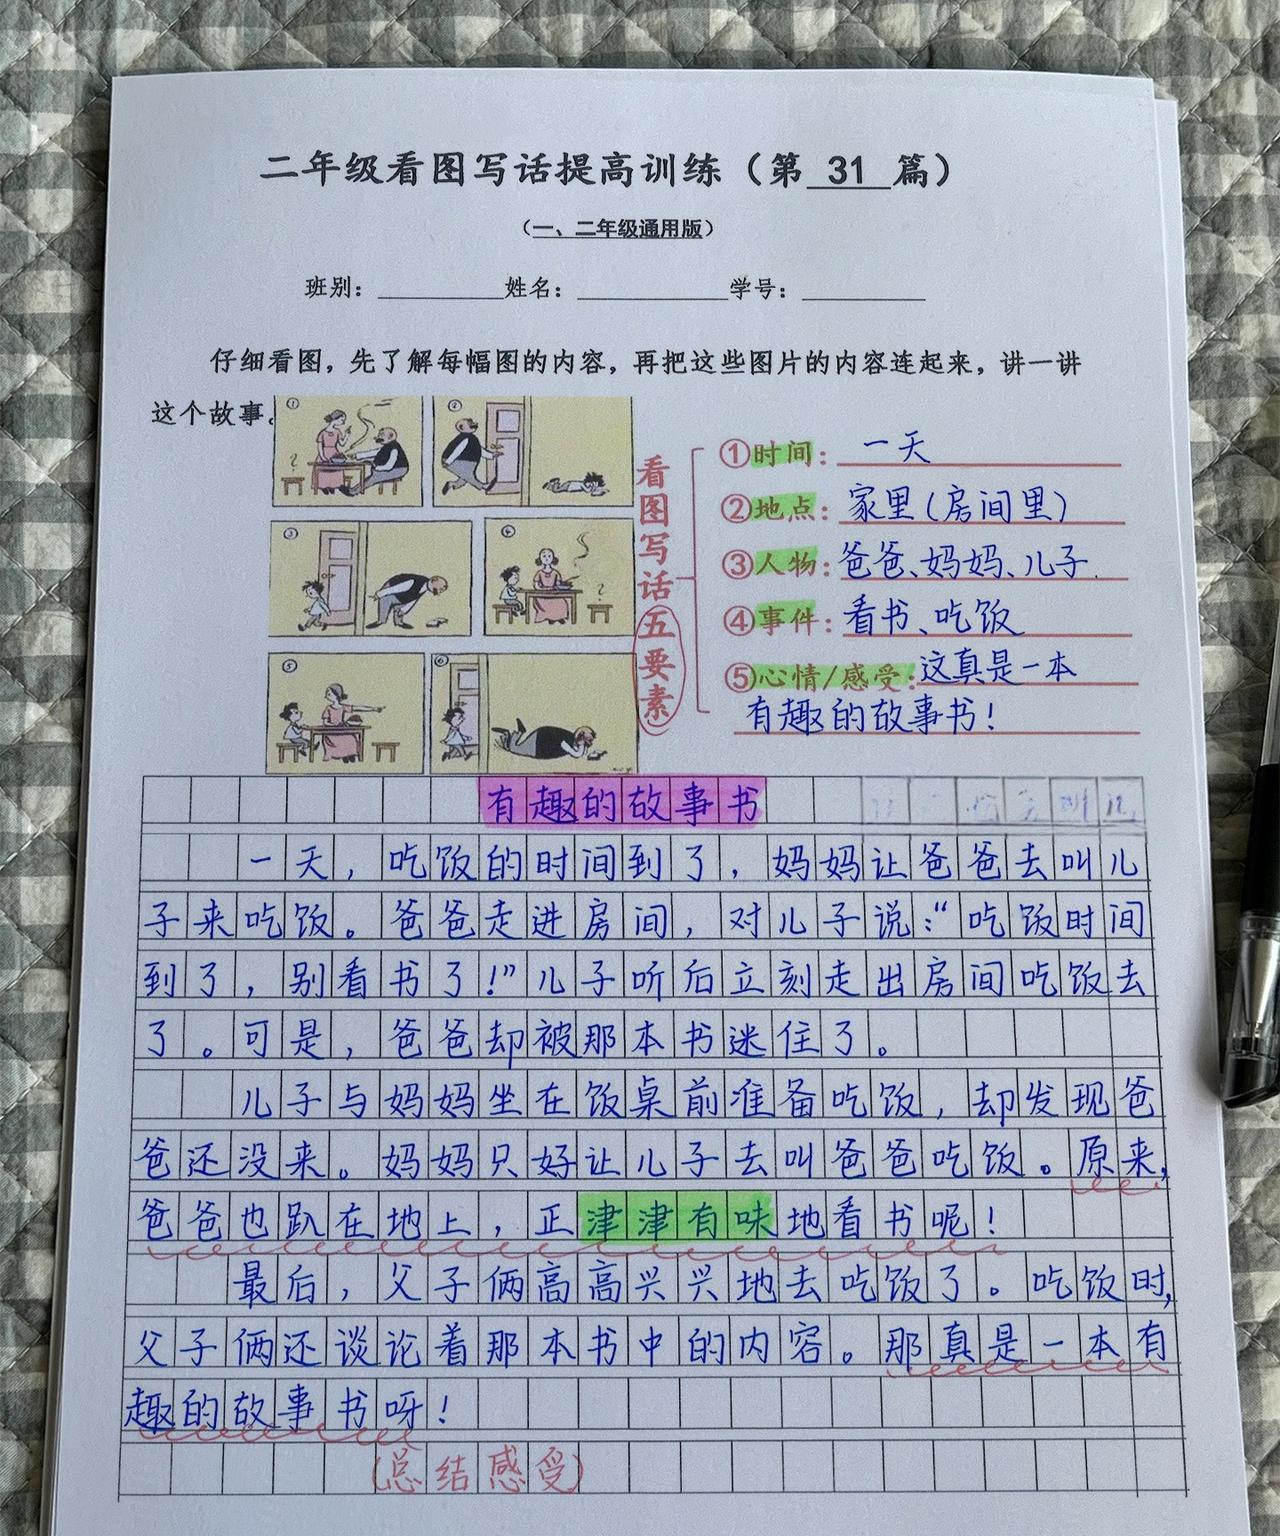 二年级看图写话提高训练（第 31 篇）
（一、二年级通用版）
班别：姓名：学号：
仔细看图，先了解每幅图的内容，再把这些图片的内容连起来，讲一讲
这个故事。
①
②
③
④
⑤
⑥
看图写话五要素
①时间：一天
②地点：家里（房间里）
③人物：爸爸、妈妈、儿子
④事件：看书、吃饭
⑤心情/感受：这真是一本
有趣的故事书！
有趣的故事书
一天，吃饭的时间到了，妈妈让爸爸去叫儿
子来吃饭。爸爸走进房间，对儿子说：“吃饭时间
到了，别看书了！”儿子听后立刻走出房间吃饭去
了。可是，爸爸却被那本书迷住了。
儿子与妈妈坐在饭桌前准备吃饭，却发现爸
爸还没来。妈妈只好让儿子去叫爸爸吃饭。原来，
爸爸也趴在地上，正津津有味地看书呢！
最后，父子俩高高兴兴地去吃饭了。吃饭时，
父子俩还谈论着那本书中的内容。那真是一本有
趣的故事书呀！
（总结感受）